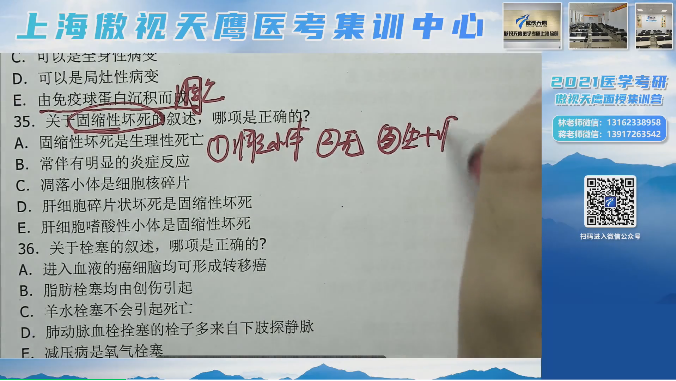 上海傲视天鹰医考集训中心
C. 可以是全身性病变
D. 可以是局灶性病变
E. 由免疫球蛋白沉积而
35. 关于固缩性坏死的叙述，哪项是正确的？
A. 固缩性坏死是生理性死亡
①凋亡小体 ②无 ③生+
B. 常伴有明显的炎症反应
C. 凋落小体是细胞核碎片
D. 肝细胞碎片状坏死是固缩性坏死
E. 肝细胞嗜酸性小体是固缩性坏死
36. 关于栓塞的叙述，哪项是正确的？
A. 进入血液的癌细脑均可形成转移癌
B. 脂肪栓塞均由创伤引起
C. 羊水栓塞不会引起死亡
D. 肺动脉血栓拴塞的栓子多来自下肢探静脉
E. 减压病是氧气栓塞
2021医学考研
傲视天鹰面授集训营
林老师微信：13162338958
蒋老师微信：13917263542
扫码进入微信公众号